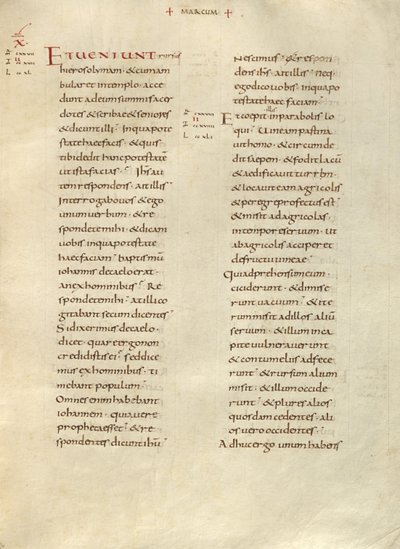 + MARCUM +
ET UENIUNT rursus
hierosolymam · & cum am
bularet in templo · acce
dunt ad eum summi sacer
dotes & scribae & seniores
& dicunt illi · In qua potes
tate haec facis · & quis
tibi dedit hanc potestatē
ut ista facias · Ihs aut
tem respondens · ait illis
Interrogabo uos & ego
unum uerbum · & re
spondete mihi · & dicam
uobis in qua potestate
haec faciam · baptismū
iohannis de caelo erat ·
an ex hominibus · Re
spondete mihi · At illi co
gitabant secum dicentes
Si dixerimus de caelo ·
dicet · quare ergo non
credidistis ei · sed dice
mus ex hominibus · ti
mebant populum ·
Omnes enim habebant
iohannem · quia uere
propheta esset · & re
spondentes dicunt ihū
Nescimus · & respon
dens ihs · ait illis · Neq
ego dico uobis · in qua po
testate haec faciam
Et coepit illis in parabolis lo
qui · Uineam pastina
uit homo · & circumde
dit saepem · & fodit lacū
& aedificauit turrem ·
& locauit eam agricolis
& peregre profectus est
& misit ad agricolas ·
in tempore seruum · ut
ab agricolis acciperet
de fructu uineae
Qui adprehensum eum ·
ceciderunt · & dimise
runt uacuum · & ite
rum misit ad illos aliū
seruum · & illum in ca
pite uulnerauerunt
& contumeliis adfece
runt · & rursum alium
misit · & illum occide
runt · & plures alios
quosdam cedentes · ali
os uero occidentes ·
Adhuc ergo unum habens